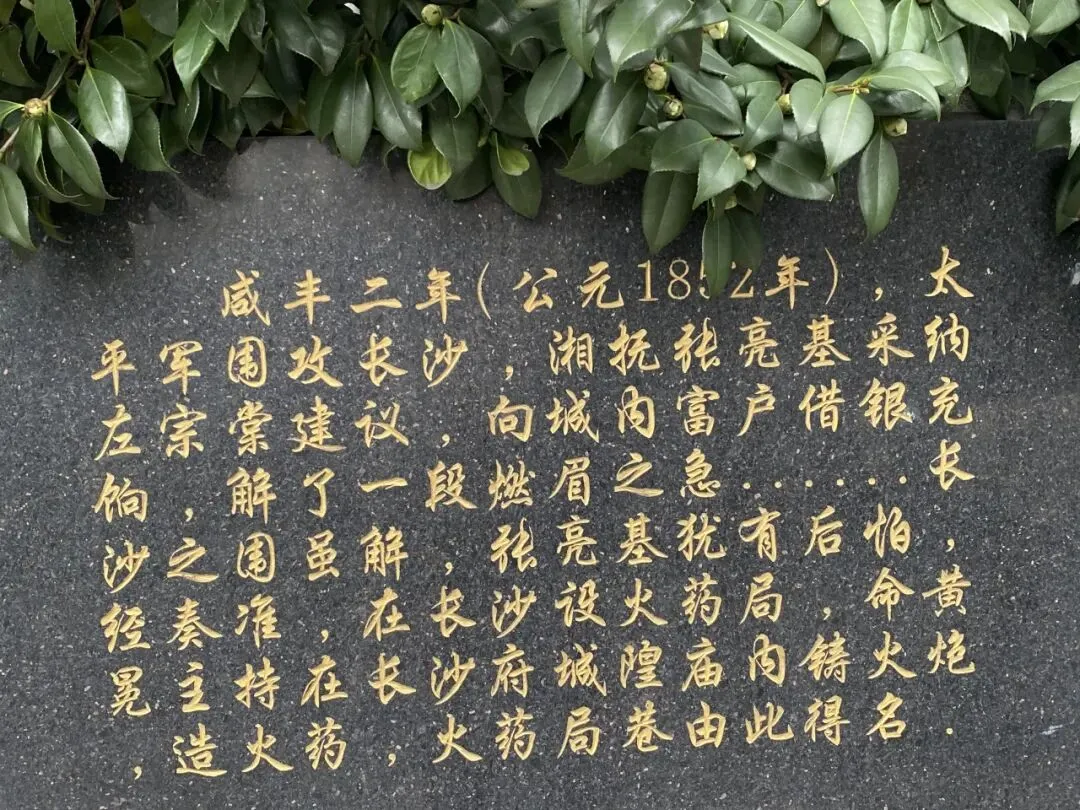 咸丰二年(公元1852年),太
平军围攻长沙,湘抚张亮基采纳
左宗棠建议,向城内富户借银充
饷,解了一段燃眉之急......长
沙之围虽解,张亮基犹有后怕,
经奏准,在长沙设火药局,命黄
冕主持在长沙府城隍庙内铸火炮
,造火药,火药局巷由此得名.